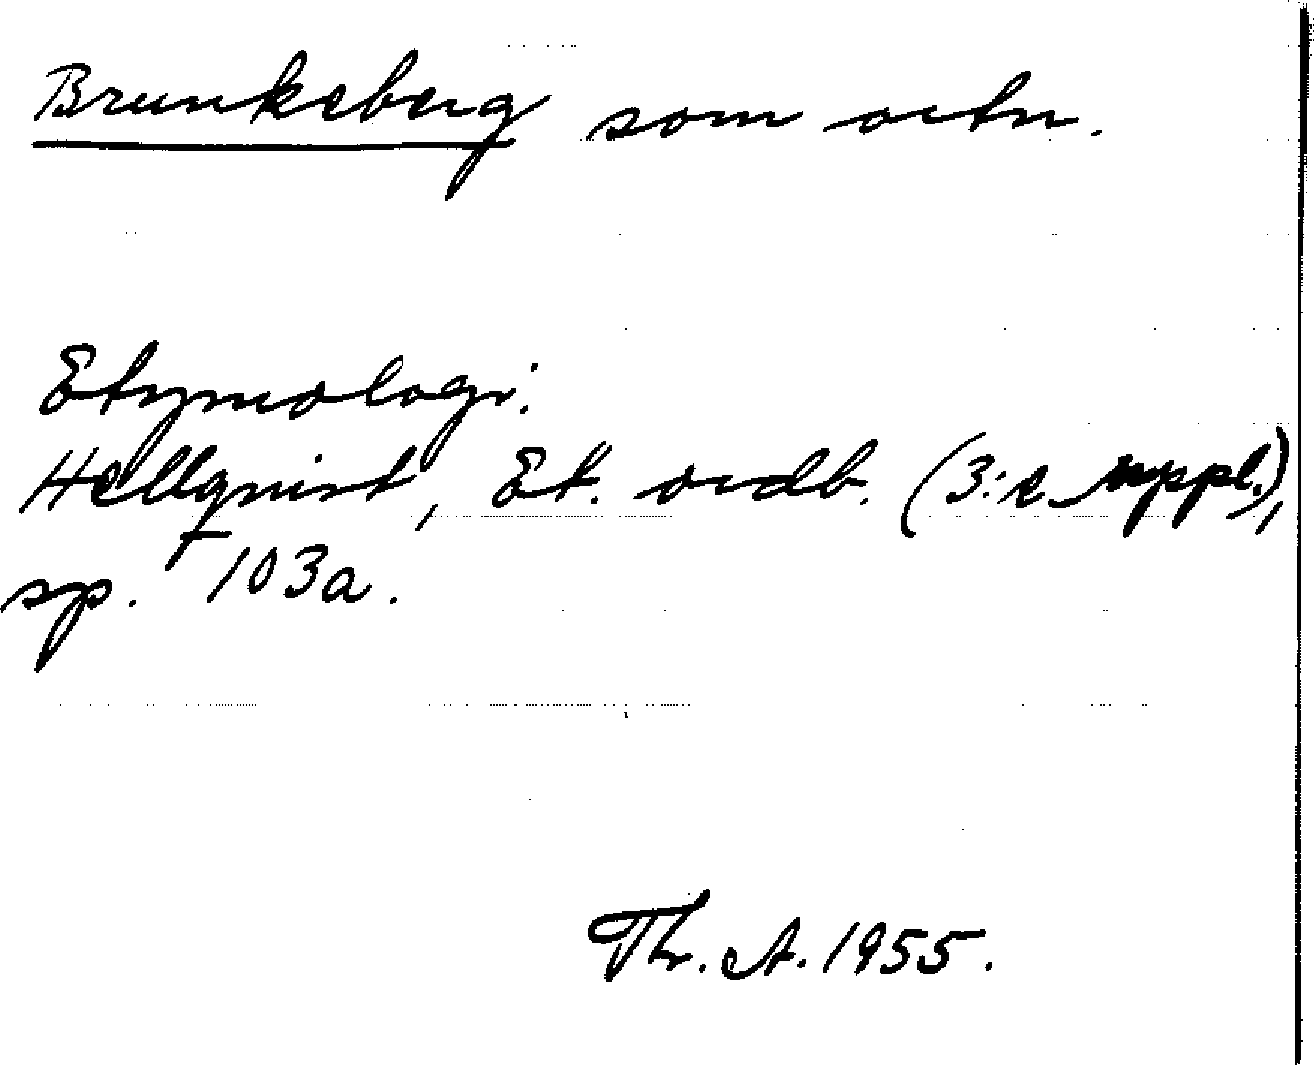 Brunkeberg som ortn.
Etymologi:
Hellquist, Et. ordb. (3:e uppl.),
sp. 103a.
Th. A. 1955.